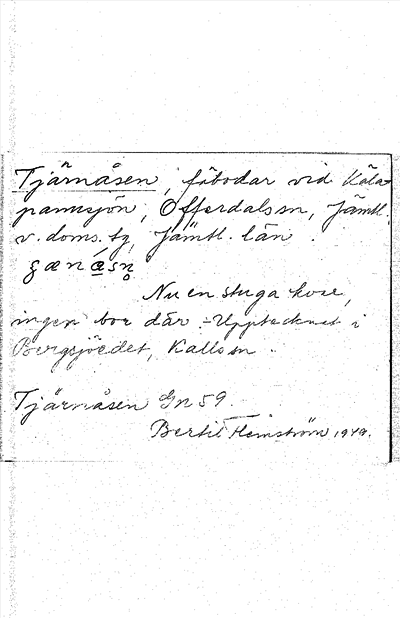 Tjärnåsen, fäbodar vid Käla-
pannsjön, Offerdals sn, Jämtl.
v. doms. tg, Jämtl. län.
Nu en stuga kvar,
ingen bor där. - Upptecknat i
Bergsjöedet, Kalls sn.
Tjärnåsen Gn 59.
Bertil Hemström 1949.